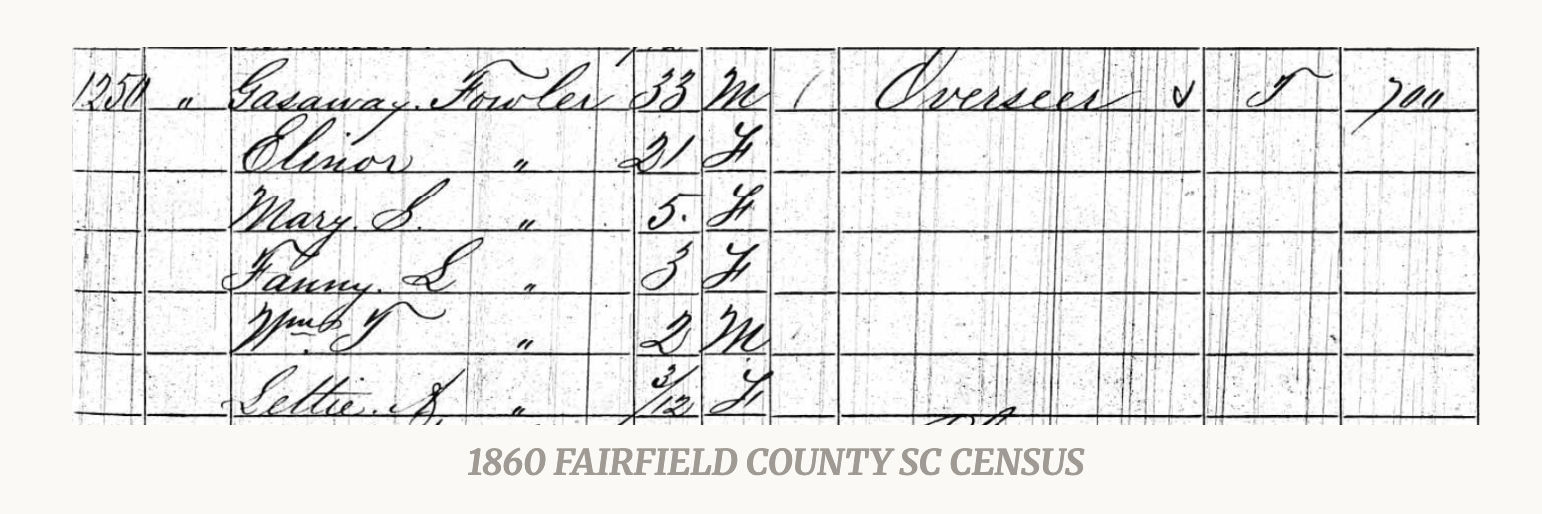 1250 " Gasaway. Fowler 33 M / Overseer T 700
Elinor " 21 F
Mary. S. " 5. F
Fanny. L " 3 F
Wm. T " 2 M
Lettie. A " 3/12 F
1860 FAIRFIELD COUNTY SC CENSUS